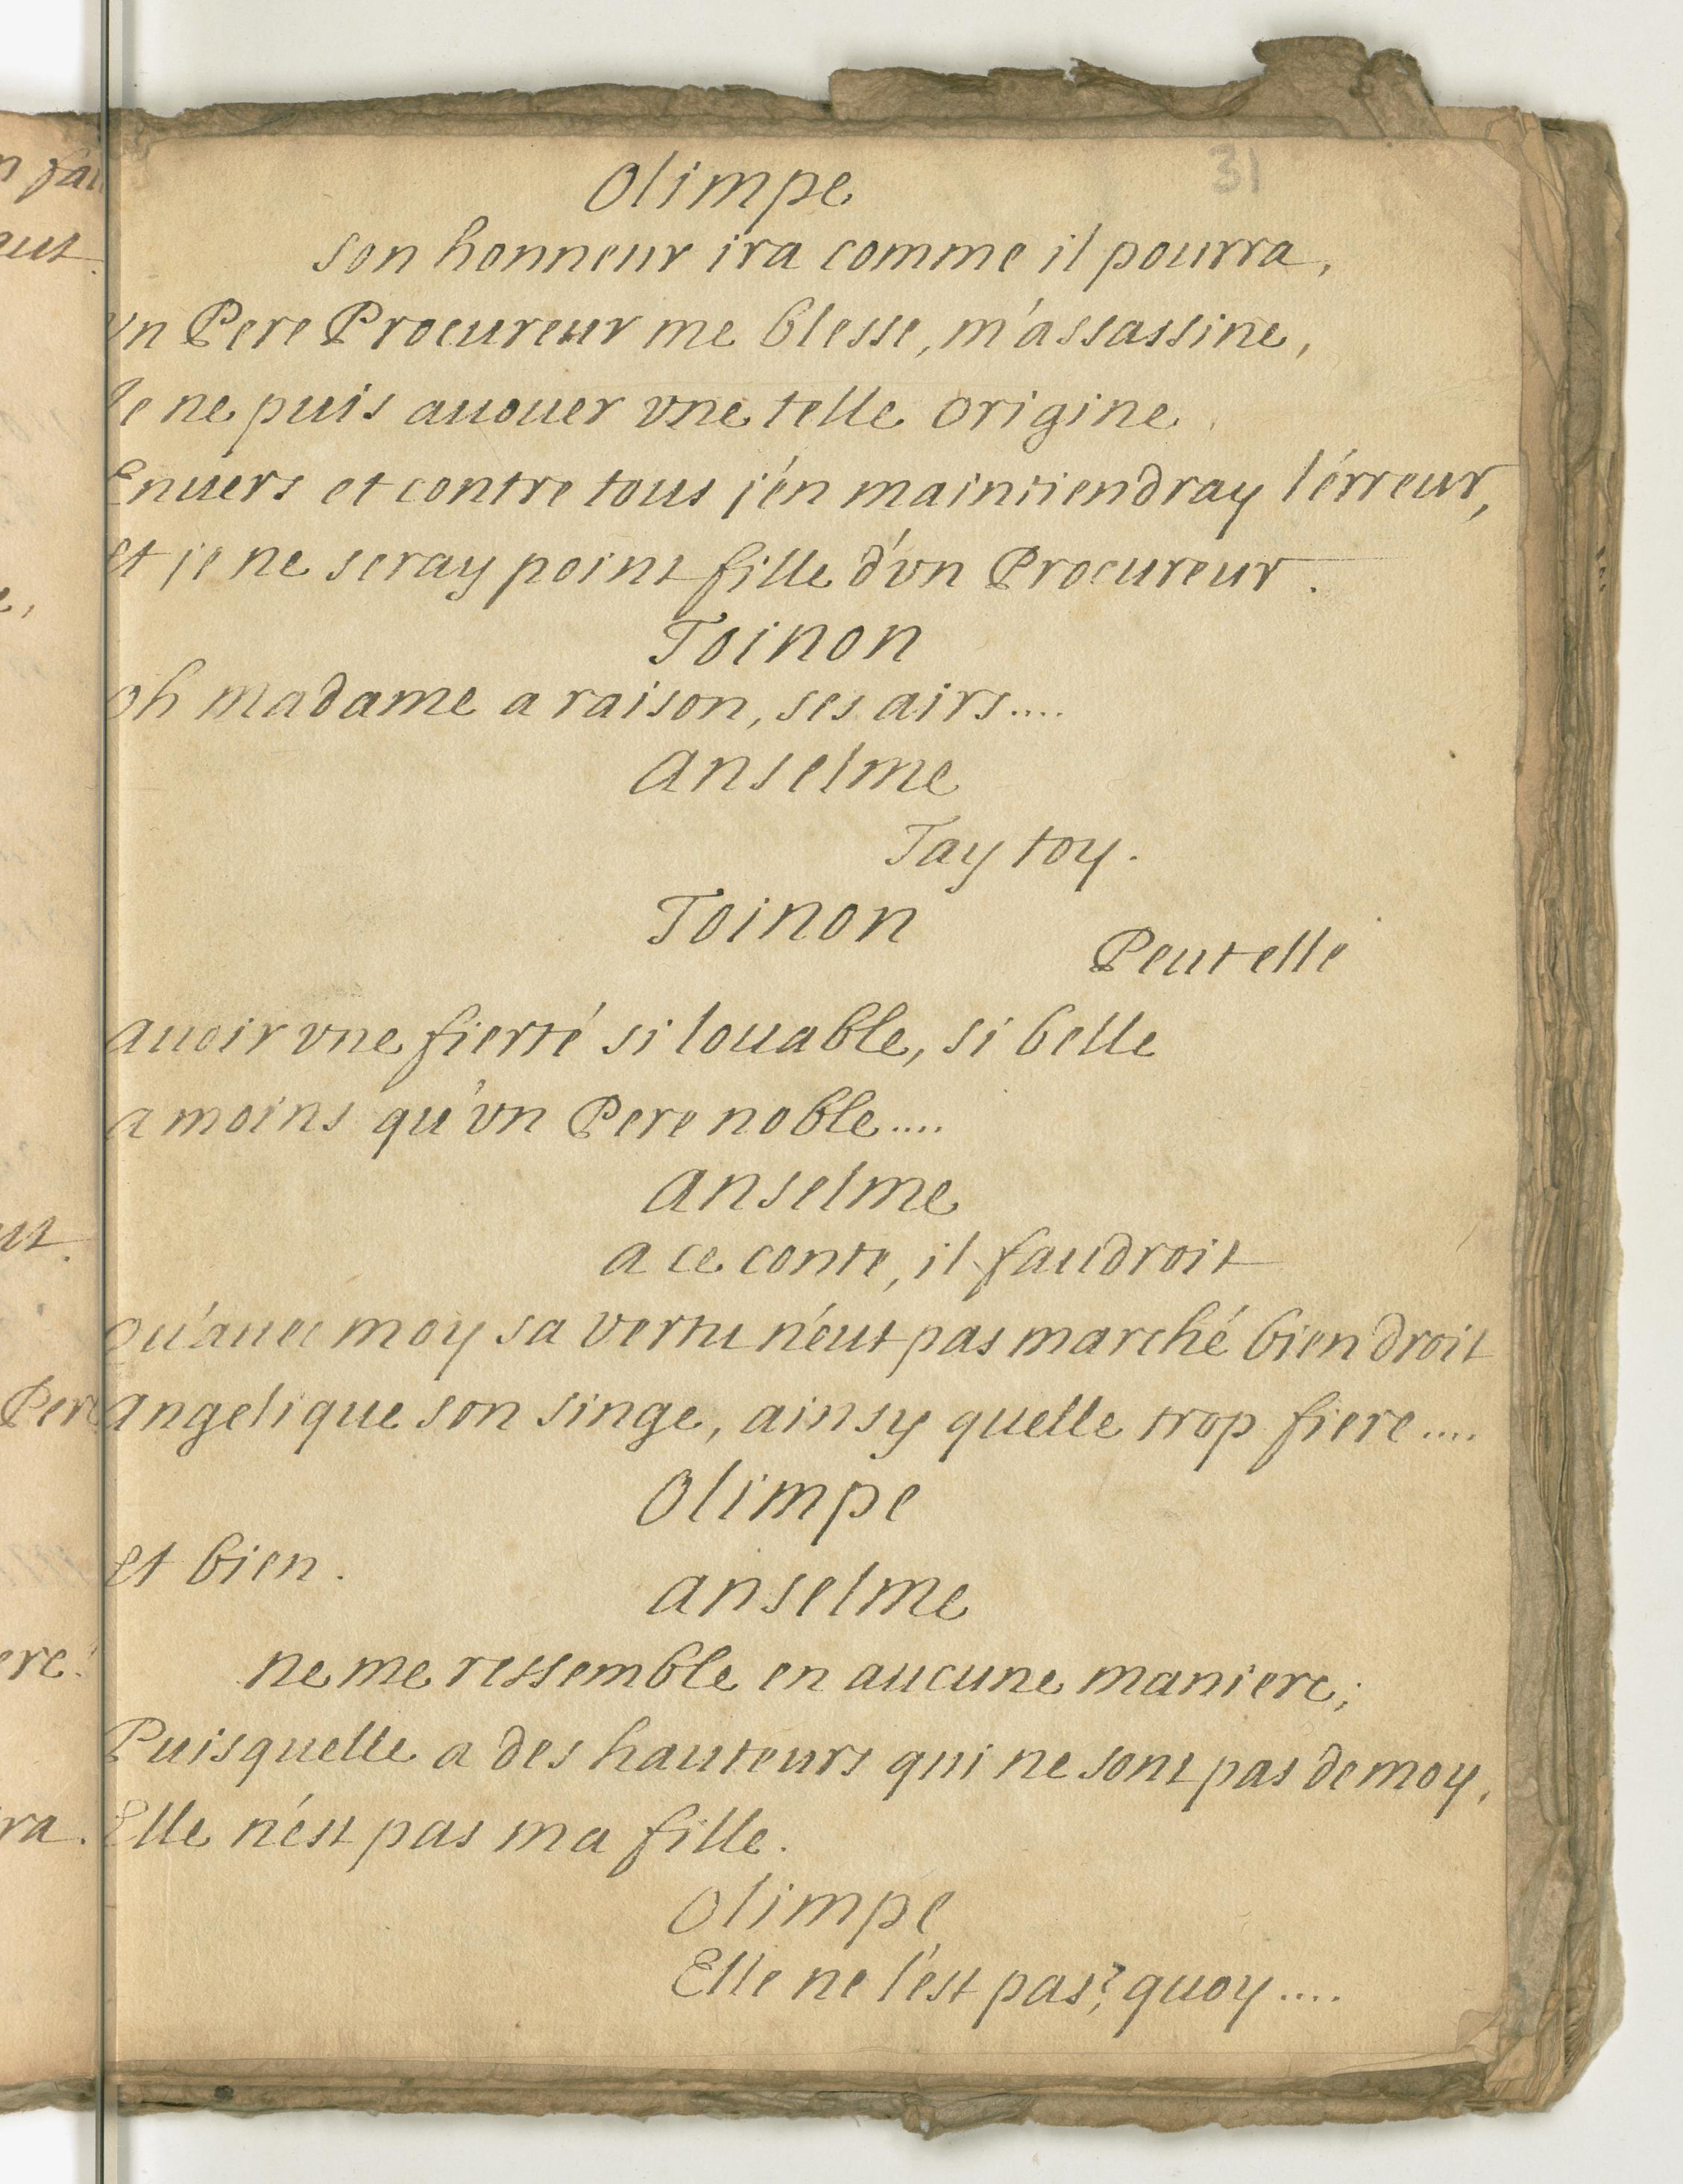 31
Olimpe
son honneur ira comme il pourra,
Vn Pere Procureur me blesse, m'assassine,
Je ne puis auouer vne telle origine.
Enuers et contre tous j'én maintiendray l'érreur,
Et je ne seray point fille d'vn Procureur.
Toinon
oh madame a raison, ses airs....
anselme
Tay toy.
Toinon
Peut elle
auoir vne fierté si louable, si belle
a moins qu'vn Pere noble....
anselme
a ce conte, il faudroit
qu'auec moy sa vertu n'eut pas marché bien droit
angelique son singe, ainsy quelle trop fiere....
Olimpe
et bien.
anselme
ne me ressemble en aucune maniere;
Puisquelle a des hauteurs qui ne sont pas de moy,
Elle n'ést pas ma fille.
Olimpe
Elle ne l'ést pas? quoy....